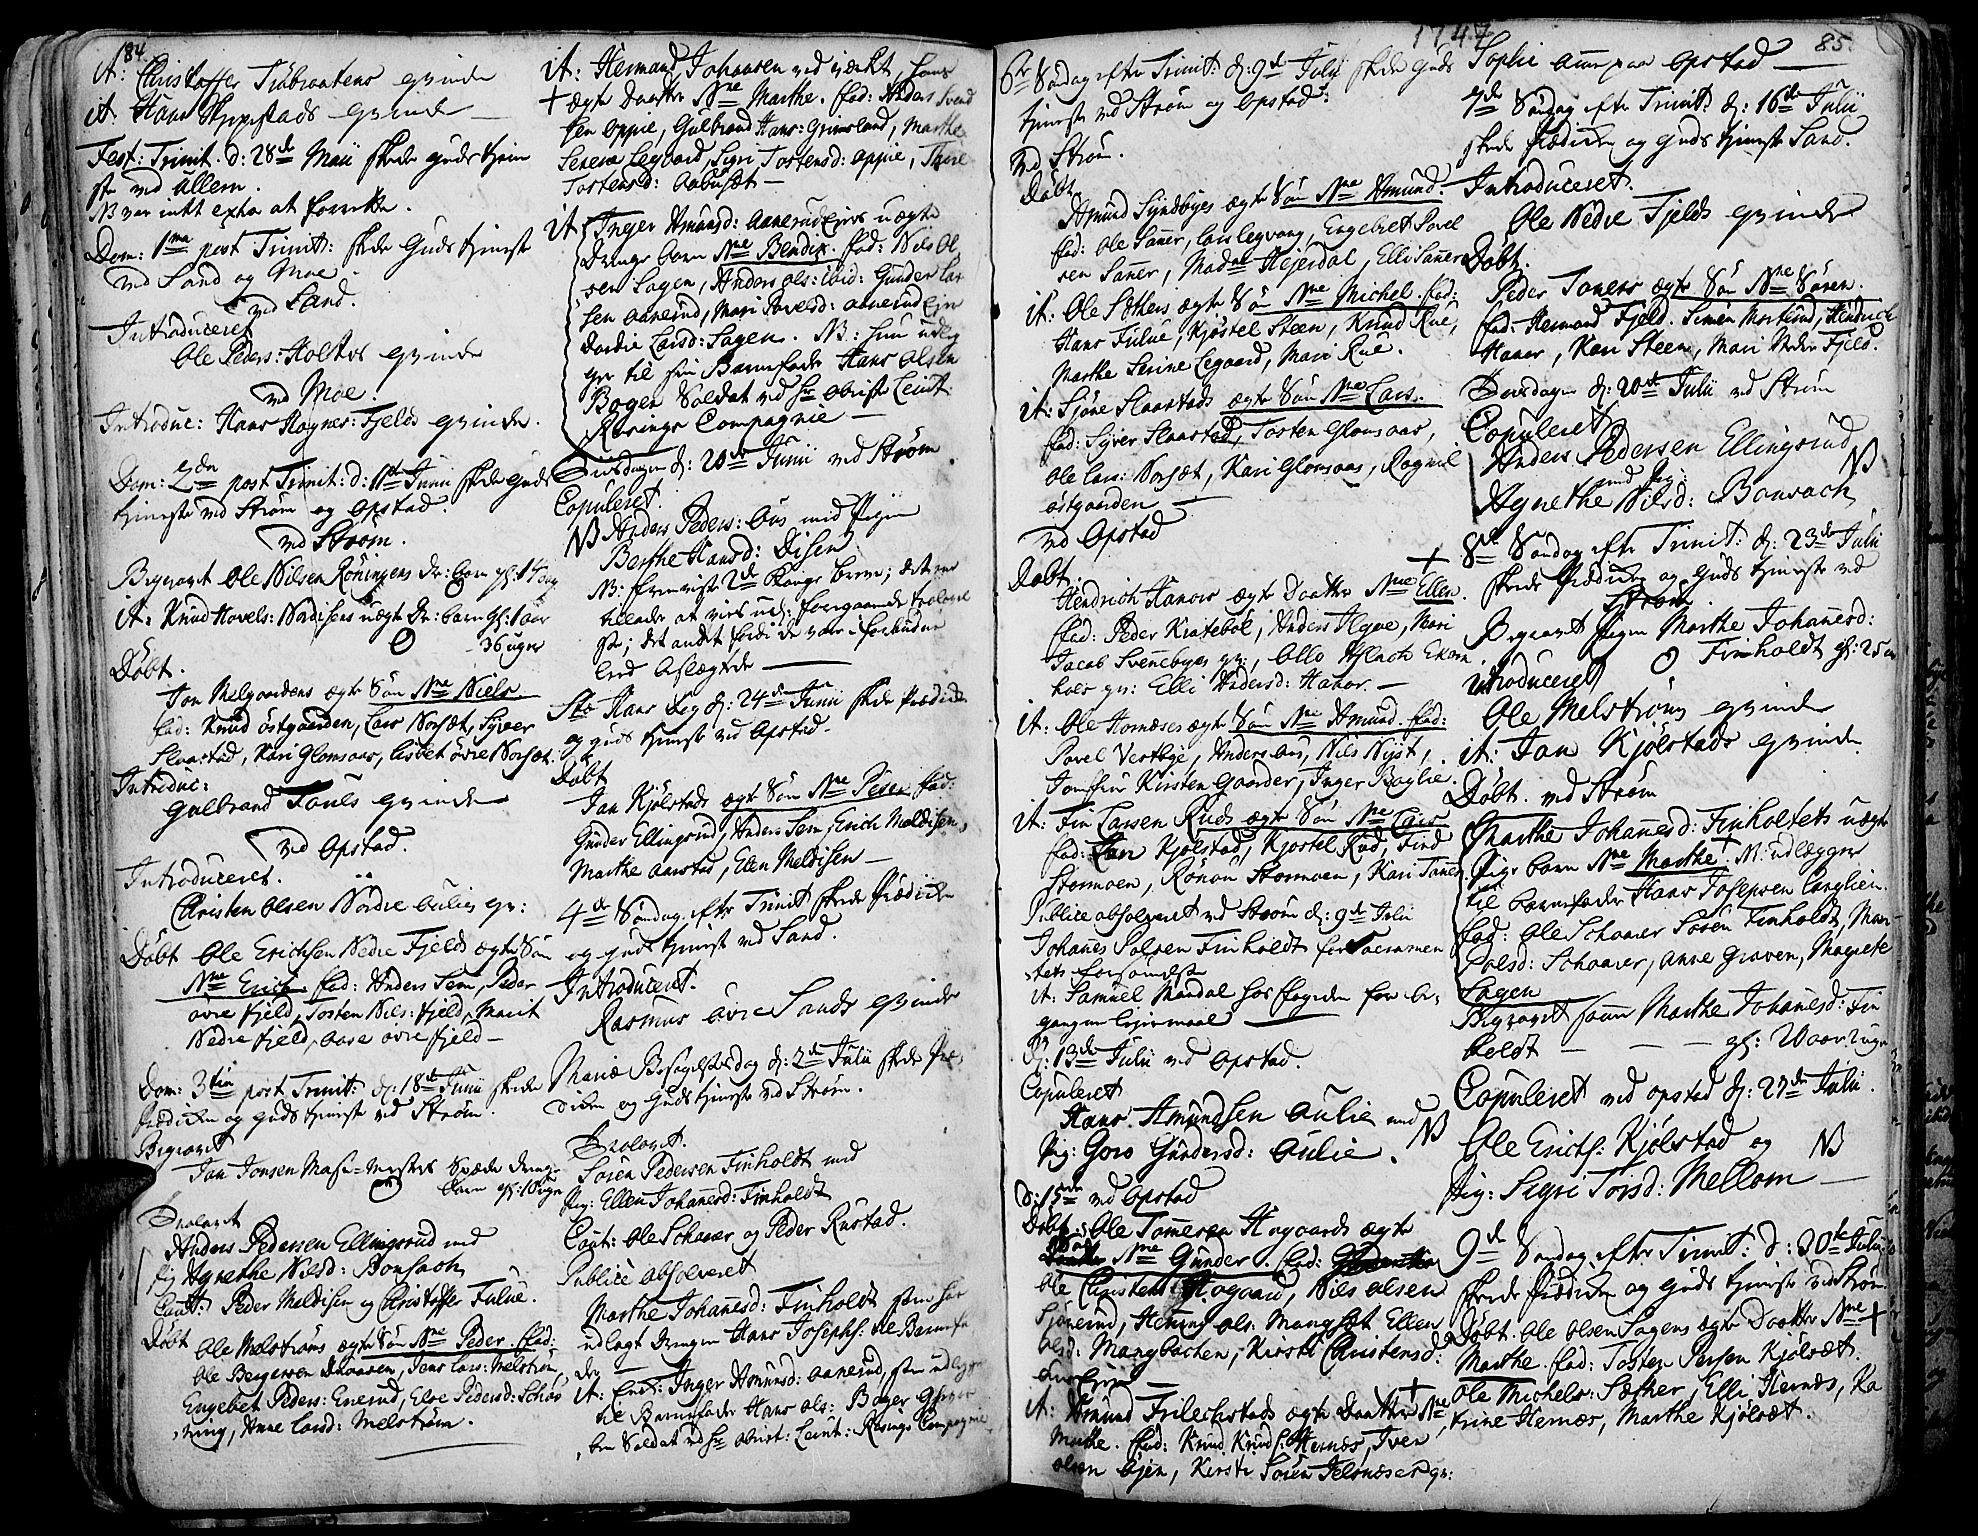 84.
it: Christoffer Trøbraatens qvinde
it: Hans Skippestads qvinde
Fest: Trinit. d: 28de Maii skede gudstjeni
ste ved Ullern.
NB var intet extra at forrette.
Dom: 1ma post Trinit: skede Guds tjeniste
ved Sand og Moe.
ved Sand.
Introduceret
Ole Peders: Holsters qvinde
ved Moe.
Introduc: Hans Hagnes: Fjelds qvinde.
Dom: 2dn post Trinit: d: 11te Junii skede guds
tjeniste ved Strøm og Opstad.
ved Strøm.
Begravet Ole Nilsen Røningens dr: barn gl: 14 dag
it: Knud Hovels: Nordisens uægte Dr: barn gl: 1 aar
36 uger
Døbt.
Jon Melgaardens ægte Søn Nne Niels
fad: Knud Østgaarden, Lars Norsæt, Syver
Slaastad, Kari Glomsaas, Lisbet øvre Norsæt.
Introduc:
Gulbrand Fouls qvinde
ved Opstad.
Introduceret.
Christen Olsen Nordre Aulies qv:
Døbt Ole Erichsen Nedre Fjelds ægte Søn
Nne Erich fad: Anders Sem, Peder
øvre Fjeld, Tosten Nils: Fjeld, Marit
Nedre Fjeld, Aase øvre Fjeld
Dom: 3tia post Trinit: d: 18de Junii skede
Prædiken og guds tjeniste ved Strøm.
Begravet
Jan Jonsen Masu-mesters Spæde Drenge
barn gl: 10 uger
Trolovet
Anders Pedersen Ellingsrud med
Pig Agnethe Nilsd: Bonsach
Caut: Peder Meldisen og Christoffer Fulue.
Døbt Ole Melstrøms ægte Søn Nne Peder fad:
Ole Bergersen, Jens Lars: Melstrøm,
Engebet Peders: Enerud, Else Pedersd:
ning, Anne Larsd: Melstrøm.
it: Hermand Johansen ved værket, hans
+ ægte Daatter Nne Marthe. fad: Anders Svend
sen Oppie, Gulbrand Hans: Grimsland, Marthe
Serene Legaard, Sigri Tostensd: Oppie,
Tostensd: Aabusæt
it Inger Amunsd: Aanerud Eiers uægte
Drenge barn Nne Bendix. fad: Nils Ol
sen Sagen, Anders Ols: ibid: Gunder Lar
sen Aanerud, Mari Povelsd: Aanerud Eier
Dordie Larsd: Sagen. NB: hun udleg
ger til sin Barnefader Hans Olsen
Bager Soldat ved Hr Obrist Leiut
Rosings Compagnie
Tirsdagen d: 20de Junii ved Strøm
Copuleret.
NB Anders Peders: Aus med Pigen
Berthe Hansd: Disen.
NB: fremviste 2de Konge breve; det ene
tillader at vies ud: foregaaende trolovel
se; det andet fordi de vare i forbudne
Leed beslægtede
Sto Hans Dag d: 24de Junii skede Prædiken
og guds tjeniste ved Opstad.
Døbt
Jan Kjølstads ægte Søn Nne Peder fad:
Gunder Ellingsrud, Anders Sem, Erich Meldisen,
Marthe Aarstad, Elen Meldisen
4de Søndag efter Trinit skede Prædiken
og guds tjeniste ved Sand.
Introduceret.
Rasmus øvre Sands qvinde
Mariæ Besøgelsesdag d: 2de Julii skede Præ,
diken og Guds tjeniste ved Strøm.
Trolovet.
Søren Pedersen Finholdt med
Pig: Ellen Johannesd: Finholdt
Caut: Ole Schaarer og Peder Rustad.
Publicè absolveret
Marthe Johannesd: Finholdt som har
udlagt Drengen Hans Josephs: til Barnefa
der
it: Inger Amunsd: Aanerud, som udlegger
til Barnefader Hans Ols: Bager
ben Soldat ved Hr Obrist: Leiut: Rosings Compagnie.
1747
85.
6te Søndag efter Trinit: d: 9de Julii skede guds
tjeniste ved Strøm og Opstad:
ved Strøm.
Døbt
Amund Syndbyes ægte Søn Nne Amund.
fad: Ole Sanner, Lars Legvang, Engebret Povel
sen Sanner, Madme Hejerdal, Elli Sanner
it: Ole Sæthers ægte Søn Nne Michel. fad:
Hans Fulue, Kjøstel Steen, Knud Rue,
Marthe Serine Legaard, Mari Rue.
it: Sjøne Slaastads ægte Søn Nne Lars.
fad: Syver Slaastad, Tosten Glomsaas,
Ole Lars: Norsæt, Kari Glomsaas, Rognil
Østgaarden
ved Opstad
Døbt
Hendrich Hanors ægte Daatter Nne Ellen. +
fad: Peder Kratebøl, Anders Algve, Mari
Jacob Svenebyes qv:,
holt qv: Elli Andersd: Hanor.
it: Ole Hornæses ægte Søn Nne Amund. fad:
Povel Vestbye, Anders Aus, Nils Nyst,
Jomfru Kirsten Gaarder, Inger Boglie.
it: Fin Larsen Ruds ægte Søn Nne Lars
fad: Jan Kjølstad, Kjøstel Rud, Find
Stormoen, Rønou Stormoen, Kari Tanner
Publicè absolveret ved Strøm d: 9de Julii
Johanes Polsen Finholdt for Sacramen
tets forsømelse
it: Samuel Mandal hos Fogeden for be,
gangne leiermaal
d: 13de Julii ved Opstad.
Copuleret
Hans Amundsen Aulie med
Pig: Goro Gundersd: Aulie. NB
d: 15de ved Opstad
Døbt Ole Tommesen Hogaards ægte
Søn Nne Gunder. fad:
Ole Christens: Hogaard, Nils Olsen
Sjonerud, Henning Ols: Mangset Ellen
Olsd: Mangbachen, Kirsti Christensd:
it: Amund Frilechstads ægte Daatter Nne +
Marthe. fad: Knud Knuds: Hernæs, Iver
Olsen Bjen, Kirsti Søren Jelsnæses qv:
Sophie Aum paa Opstad
7de Søndag efter Trinit: d: 16de Julii
skede Prædiken og Guds tjeniste Sand.
Introduceret.
Ole Nedre Fjelds qvinde
Døbt.
Peder Toners ægte Søn Nne Søren.
fad: Hermand Fjeld. Simen Morterud, Hendrich
Hanor, Kari Steen, Mari Nedre Fjeld.
Torsdagen d: 20de Julii ved Strøm
Copuleret
Anders Pedersen Ellingsrud
med Pig: NB
Agnethe Nilsd: Bonsach
8de Søndag efter Trinit: d: 23de Julii
skede Prædiken og Guds tjeniste ved
Strøm.
Begravet Pigen Marthe Johanesd:
Finholdt gl: 25 aar
Introduceret
Ole Melstrøms qvinde
it: Jan Kjølstads qvinde
Døbt. ved Strøm
Marthe Johanesd: Finholtets uægte
Pige barn Nne Marthe + NB: udlegger
til barnefader Hans Josepsen Langlien.
fad: Ole Schaarer Søren Finholdt, Mari
Polsd: Schaarer, Anne Graven, Magrete
Sagen
Begravet samme Marthe Johanesd: Fin
holdt — — — gl: 11 aar 2 uger
Copuleret ved Opstad d: 27de Julii.
Ole Erichs: Kjølstad og NB
Pig: Sigri Torsd: Mellom
9de Søndag efter Trinit: d: 30te Julii
skede Prædiken og Guds tjeniste ved Strøm
Døbt. Ole Olsen Sagens ægte Daatter Nne +
Marthe. fad: Tosten Persen Kjølsæt.
Ole Michels: Sæther, Elli Hernæs, Ka
trine Hernæs, Marthe Kjølsæt.